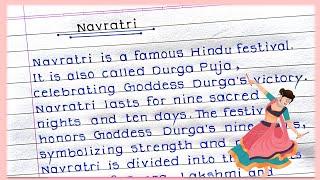 Navratri
Navratri is a famous Hindu festival.
It is also called Durga Puja,
celebrating Goddess Durga's victory.
Navratri lasts for nine sacred
nights and ten days. The festiv
honors Goddess Durga's nine
symbolizing strength and
Navratri is divided into th
Lakshmi and